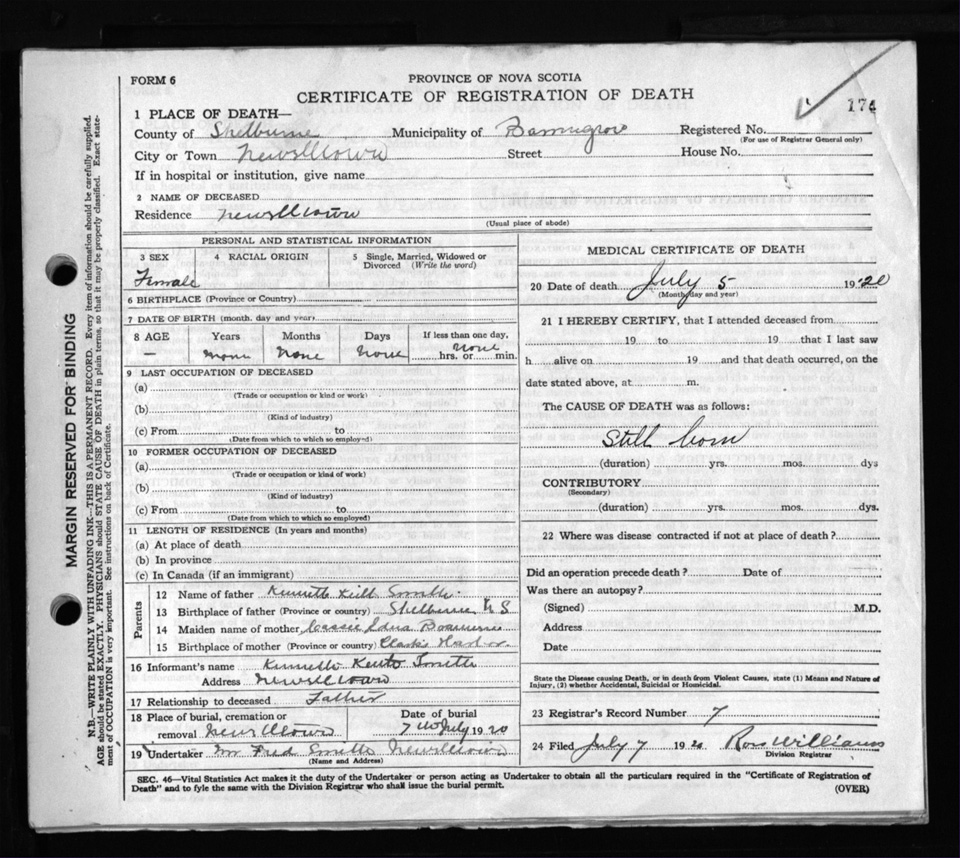 FORM 6
PROVINCE OF NOVA SCOTIA
CERTIFICATE OF REGISTRATION OF DEATH
174
1 PLACE OF DEATH—
County of Shelburne Municipality of Registered No.
(For use of Registrar General only)
City or Town Newelltown Street House No.
If in hospital or institution, give name
2 NAME OF DECEASED
Residence Newelltown
(Usual place of abode)
PERSONAL AND STATISTICAL INFORMATION
3 SEX 4 RACIAL ORIGIN 5 Single, Married, Widowed or Divorced (Write the word)
Female
6 BIRTHPLACE (Province or Country)
7 DATE OF BIRTH (month, day and year)
8 AGE Years Months Days If less than one day,
— none none none none hrs. or min.
9 LAST OCCUPATION OF DECEASED
(a)
(Trade or occupation or kind or work)
(b)
(Kind of industry)
(c) From to
(Date from which to which so employed)
10 FORMER OCCUPATION OF DECEASED
(a)
(Trade or occupation or kind of work)
(b)
(Kind of industry)
(c) From to
(Date from which to which so employed)
11 LENGTH OF RESIDENCE (In years and months)
(a) At place of death
(b) In province
(c) In Canada (if an immigrant)
Parents
12 Name of father Kenneth Keith Smith
13 Birthplace of father (Province or country) Shelburne N S
14 Maiden name of mother Cassie Edna
15 Birthplace of mother (Province or country) Clark's Harbor
16 Informant's name Kenneth Smith
Address Newelltown
17 Relationship to deceased Father
18 Place of burial, cremation or removal Newelltown
Date of burial
7 July 1920
19 Undertaker Mr Fred Smith Newelltown
(Name and Address)
MEDICAL CERTIFICATE OF DEATH
20 Date of death July 5 1920
(Month, day and year)
21 I HEREBY CERTIFY, that I attended deceased from
19 to 19 that I last saw
h alive on 19 and that death occurred, on the
date stated above, at m.
The CAUSE OF DEATH was as follows:
Still born
(duration) yrs. mos. dys
CONTRIBUTORY
(Secondary)
(duration) yrs. mos. dys.
22 Where was disease contracted if not at place of death?
Did an operation precede death? Date of
Was there an autopsy?
(Signed) M.D.
Address
Date
State the Disease causing Death, or in death from Violent Causes, state (1) Means and Nature of
Injury, (2) whether Accidental, Suicidal or Homicidal.
23 Registrar's Record Number 7
24 Filed July 7 1920 Williams
Division Registrar
SEC. 46—Vital Statistics Act makes it the duty of the Undertaker or person acting as Undertaker to obtain all the particulars required in the "Certificate of Registration of
Death" and to fyle the same with the Division Registrar who shall issue the burial permit.
(OVER)
MARGIN RESERVED FOR BINDING
N.B.—WRITE PLAINLY WITH UNFADING INK—THIS IS A PERMANENT RECORD. Every item of information should be carefully supplied.
AGE should be stated EXACTLY. PHYSICIANS should STATE CAUSE OF DEATH in plain terms, so that it may be properly classified. Exact state-
ment of OCCUPATION is very important. See instructions on back of Certificate.